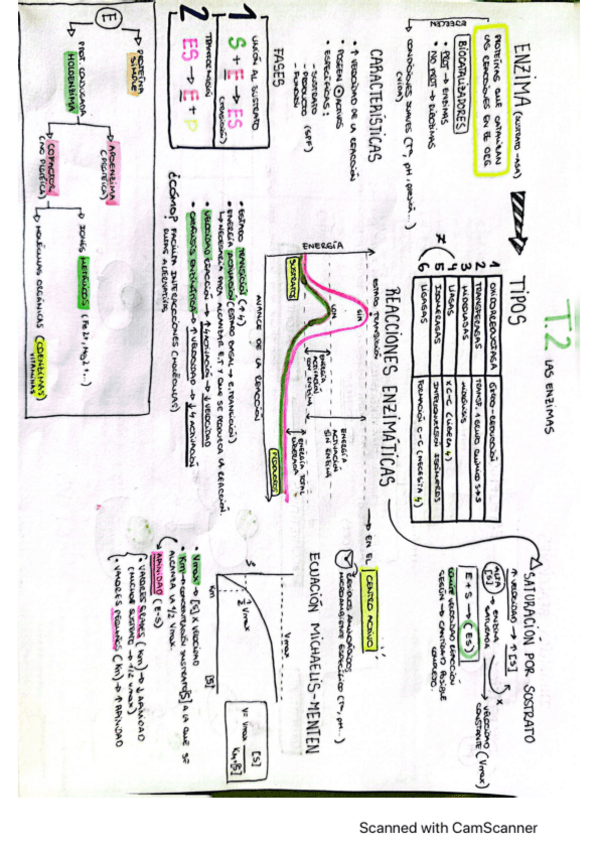 T.2 LAS ENZIMAS
ENZIMA (SUSTRATO -ASA)
PROTEÍNAS QUE CATALIZAN
LAS REACCIONES EN EL ORG
BIOCATALIZADORES
• PROT → ENZIMAS
• NO PROT → RIBOZIMAS
→ CONDICIONES SUAVES (Tª, pH, presión...)
(VIDA)
CARACTERÍSTICAS
• ↑ VELOCIDAD DE LA REACCIÓN
• POSEEN CENTROS ACTIVOS
• ESPECÍFICAS:
- SUSTRATO
- PRODUCTO
- FUNCIÓN
FASES
1 UNIÓN AL SUSTRATO
S + E → ES
2 TRANSFORMACIÓN
ES → E + P
E
PROTEÍNA
SIMPLE
PROT CONJUGADA
HOLOENZIMA
APOENZIMA
(PROTEICA)
COFACTOR
(NO PROTEICA)
IONES METÁLICOS (Fe2+, Mg2+...)
MOLÉCULAS ORGÁNICAS (COENZIMAS)
VITAMINAS
TIPOS
1 OXIDORREDUCTASA
REDOX-REDUCCIÓN
2 TRANSFERASAS
TRANSF. 1 GRUPO QUÍMICO
3 HIDROLASAS
HIDRÓLISIS
4 LIASAS
5 ISOMERASAS
INTERCONVERSIÓN ISÓMEROS
6 LIGASAS
FORMACIÓN C-C (NECESITA
REACCIONES ENZIMÁTICAS
ESTADO TRANSICIÓN
ENERGÍA
SUSTRATO
SIN
CON
ENERGÍA
ACTIVACIÓN
CON ENZIMA
ENERGÍA
ACTIVACIÓN
SIN ENZIMA
ENERGÍA TOTAL
LIBERADA
PRODUCTO
AVANCE DE LA REACCIÓN
• ESTADO TRANSICIÓN
• ENERGÍA ACTIVACIÓN (ESTADO BASAL → E. TRANSICIÓN)
↳ NECESARIA PARA ALCANZAR E.T Y QUE SE PRODUZCA LA REACCIÓN.
• VELOCIDAD REACCIÓN → ↑ ACTIVACIÓN → ↓ VELOCIDAD
• CATÁLISIS ENZIMÁTICA → ↑ VELOCIDAD → ↓ ACTIVACIÓN
¿CÓMO? FACILITA INTERACCIONES (MOLÉCULAS)
RUTAS ALTERNATIVAS
→ EN EL CENTRO ACTIVO
RESIDUOS AMINOÁCIDOS
MICROAMBIENTE ESPECÍFICO (Tª, pH...)
SATURACIÓN POR SUSTRATO
↑ VELOCIDAD → ↑ [S]
ALTA [S] → ENZIMA
SATURADA
VELOCIDAD
CONSTANTE (Vmax)
E + S → (ES)
LÍMITE VELOCIDAD REACCIÓN
SEGÚN → CANTIDAD POSIBLE
COMPLEJO.
ECUACIÓN MICHAELIS-MENTEN
Vmax
½ Vmax
Km
[S]
V = Vmax [S] / Km+[S]
• Vmax → [S] X VELOCIDAD
• Km → CONCENTRACIÓN SUSTRATO [S] A LA QUE SE
ALCANZA LA 1/2 Vmax.
AFINIDAD (E-S)
• VALORES GRANDES (Km) → ↓ AFINIDAD
(MUCHOR SUSTRATO → 1/2 Vmax)
• VALORES PEQUEÑOS (Km) → ↑ AFINIDAD
Scanned with CamScanner